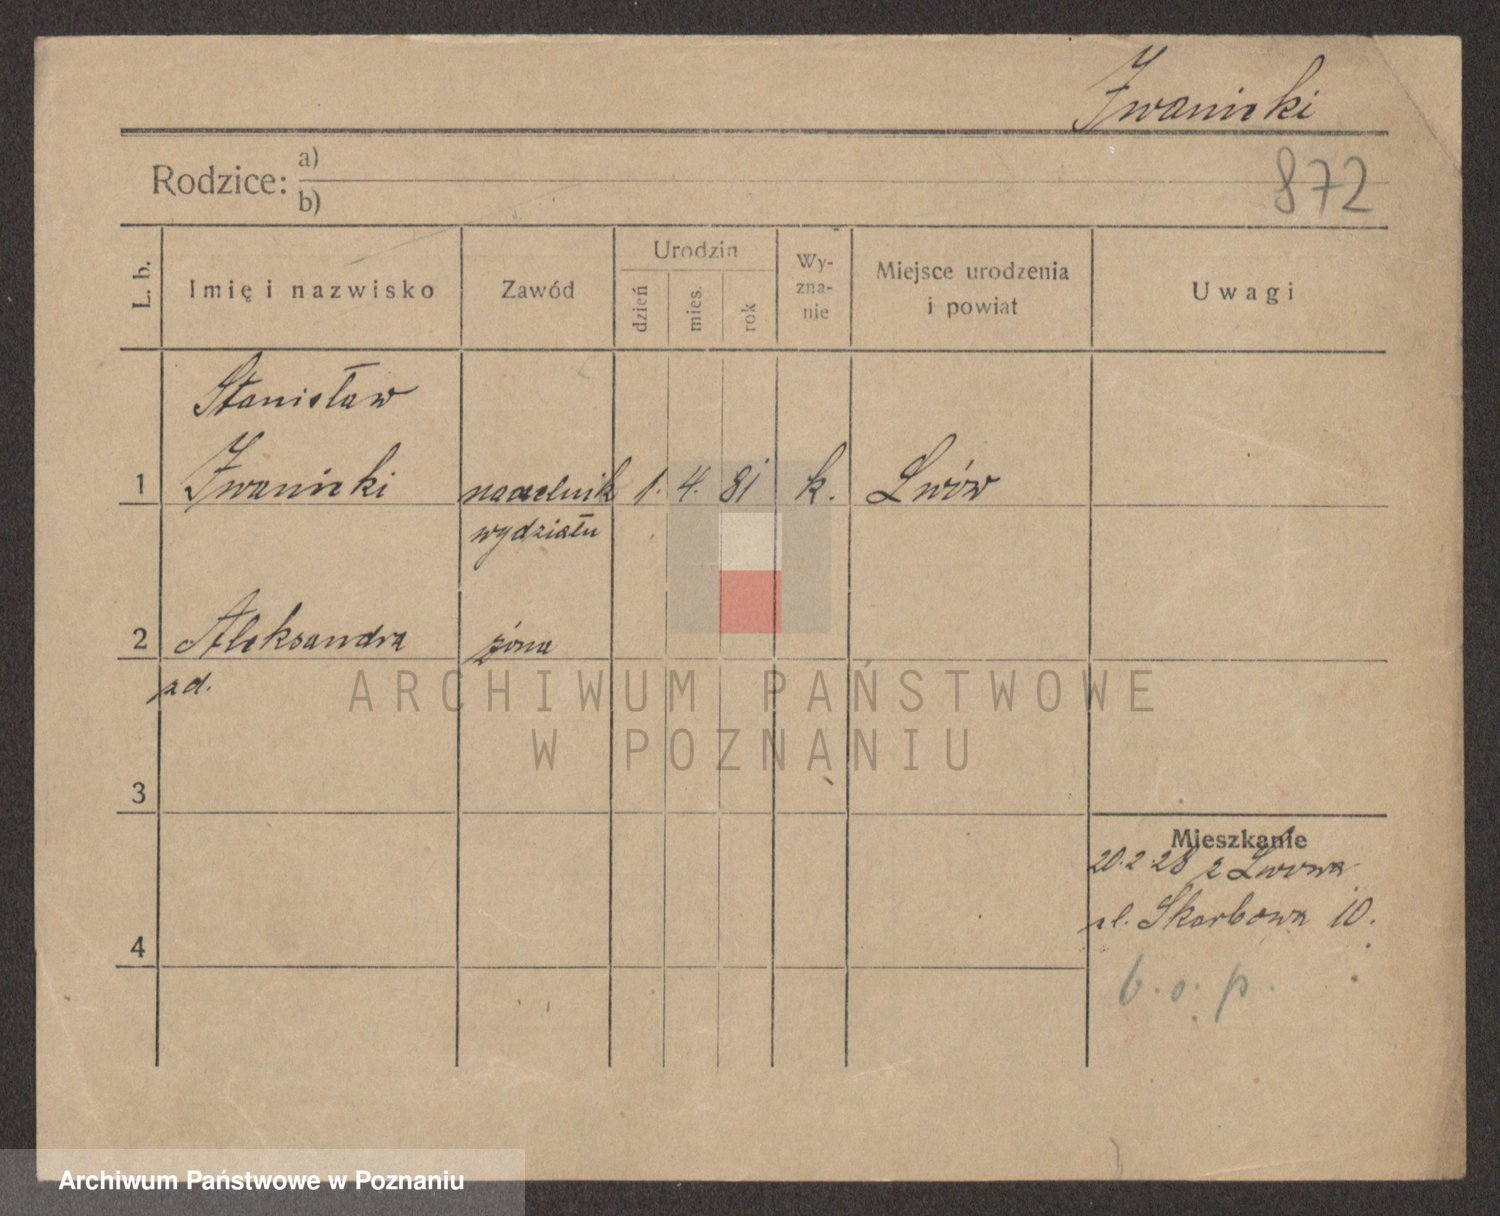 Iwanicki
Rodzice: a)
b)
872
L. b.
Imię i nazwisko
Zawód
Urodzin
dzień
mies.
rok
Wy-
zna-
nie
Miejsce urodzenia
i powiat
Uwagi
Stanisław
1 Iwanicki naczelnik 1. 4. 81 k. Lwów
wydziału
2 Aleksandra żona
zd.
3
Mieszkanie
20.2.28 z Lwowa
ul. Skarbowa 10.
4
b. o. p.
ARCHIWUM PAŃSTWOWE
W POZNANIU
Archiwum Państwowe w Poznaniu